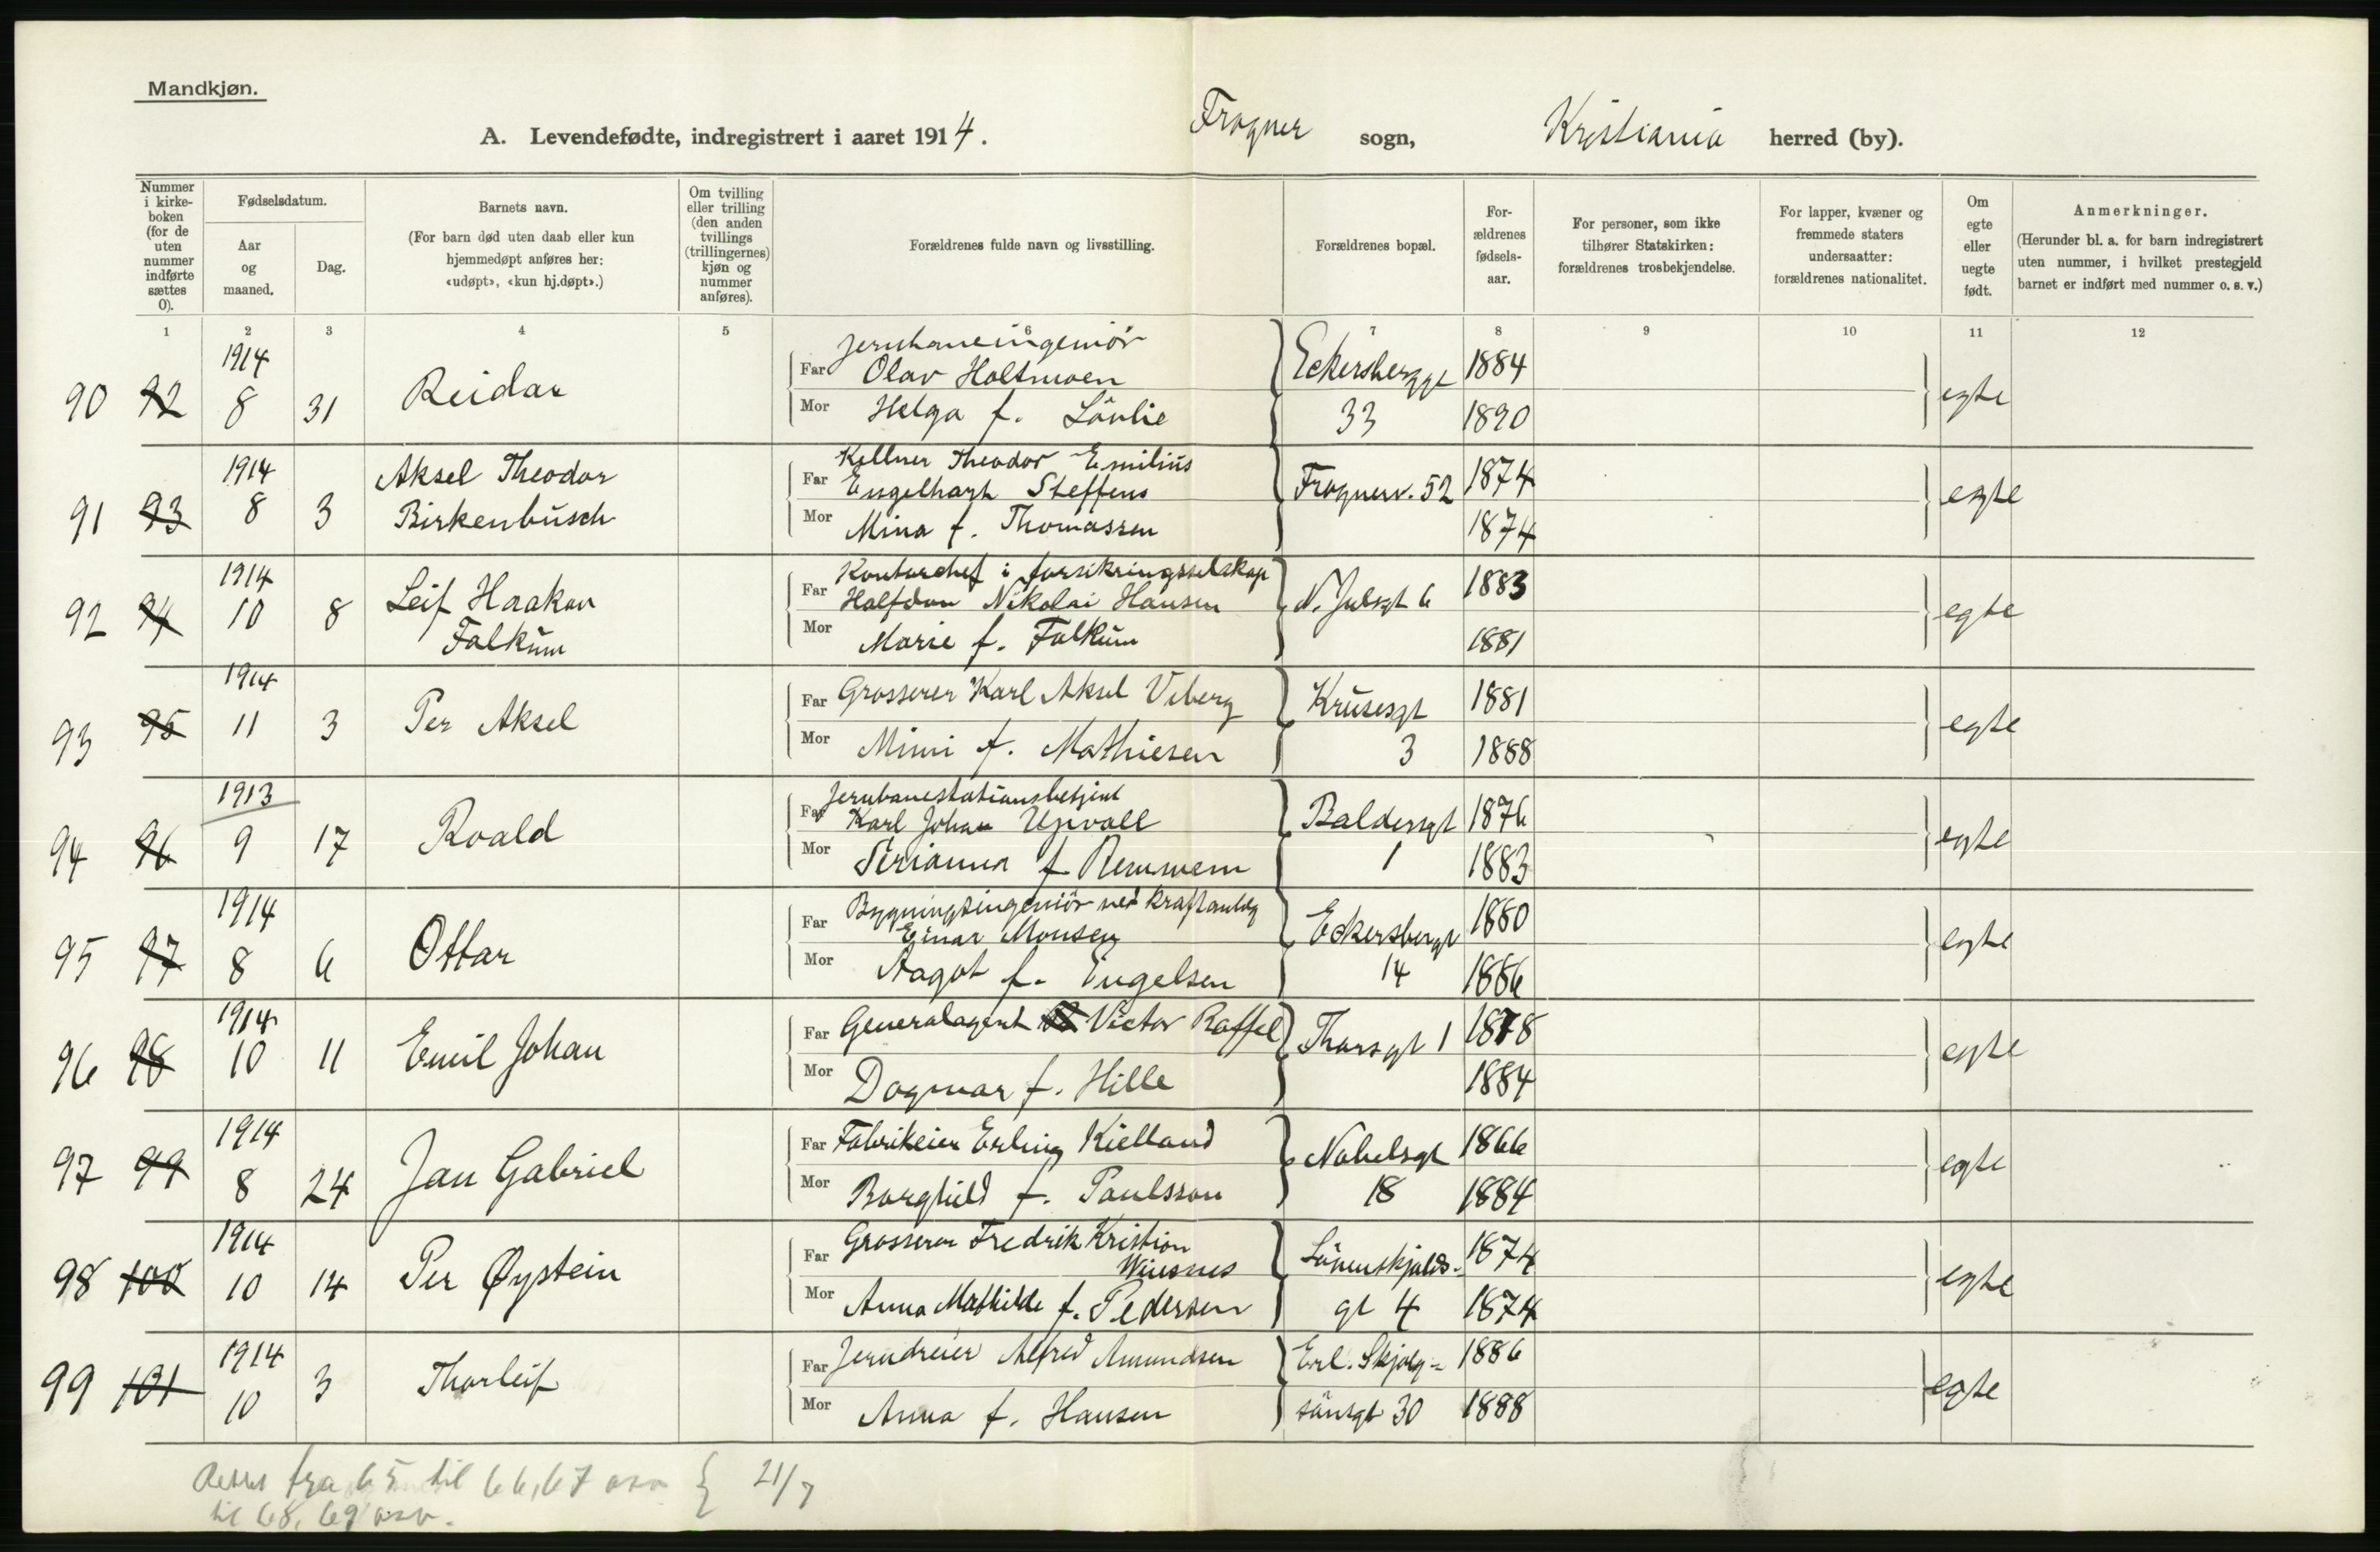 Mandkjøn.
A. Levendefødte, indregistrert i aaret 1914. Frogner sogn, Kristiania herred (by).
Nummer i kirke-boken (for de uten nummer indførte sættes 0).
Fødselsdatum.
Aar og maaned.
Dag.
Barnets navn.
(For barn død uten daab eller kun hjemmedøpt anføres her: «udøpt», «kun hj.døpt».)
Om tvilling eller trilling (den anden tvillings (trillingernes) kjøn og nummer anføres).
Forældrenes fulde navn og livsstilling.
Forældrenes bopæl.
For-ældrenes fødsels-aar.
For personer, som ikke tilhører Statskirken: forældrenes trosbekjendelse.
For lapper, kvæner og fremmede staters undersaatter: forældrenes nationalitet.
Om egte eller uegte født.
Anmerkninger.
(Herunder bl. a. for barn indregistrert uten nummer, i hvilket prestegjeld barnet er indført med nummer o. s. v.)
1 2 3 4 5 6 7 8 9 10 11 12
1914 Jernbaneingeniör
90 92 8 31 Reidar Far Olav Holtmoen Eckersberggt 1884 egte
Mor Helga f. Lövlie 33 1890
1914 Aksel Theodor Kellner Theodor Emilius
91 93 8 3 Birkenbusch Far Engelhart Steffens Frognerv. 52 1874 egte
Mor Mina f. Thomassen 1874
1914 Kontorchef i forsikringsselskap
92 94 10 8 Leif Haakon Far Halfdan Nikolai Hansen N. Julsgt 6 1883 egte
Falkum Mor Marie f. Falkum 1881
1914
93 95 11 3 Per Aksel Far Grosserer Karl Aksel Viberg Krusesgt 1881 egte
Mor Mimi f. Mathiesen 3 1888
1913 Jernbanestationsbetjent
94 96 9 17 Roald Far Karl Johan Upvall Baldersgt 1876 egte
Mor f 1 1883
1914 Bygningsingeniör ved kraftanlæg
95 97 8 6 Ottar Far Einar Monsen Eckersbergt 1880 egte
Mor Aagot f. Engelsen 14 1886
1914
96 98 10 11 Emil Johan Far Generalagent Victor Raffel Thorsgt 1 1878 egte
Mor Dagmar f. Hille 1884
1914
97 99 8 24 Jan Gabriel Far Fabrikeier Erling Kielland Nobelsgt 1866 egte
Mor Borghild f. Paulsson 18 1884
1914 Grosserer Fredrik Kristian
98 100 10 14 Per Øystein Far Wiesnes Lövenskjolds- 1874 egte
Mor Anna Mathilde f. Pedersen gt 4 1874
1914
99 101 10 3 Thorleif Far Jerndreier Alfred Amundsen Erl. Skjalg= 1886 egte
Mor Anna f. Hansen sönsgt 30 1888
Rettet fra 65 til 66, 67 osv } 21/7
til 68, 69 osv.